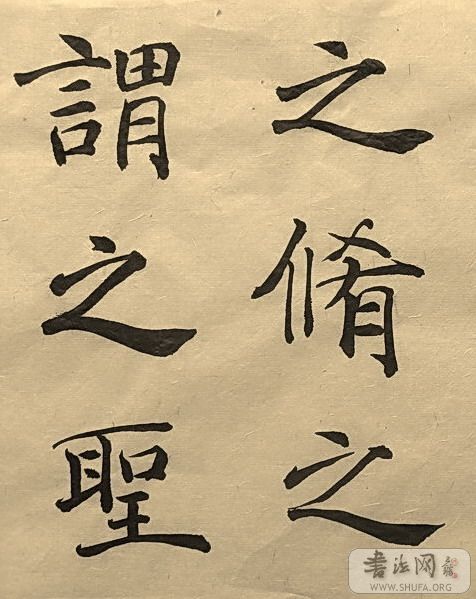 之脩之
謂之聖
書法网
WWW.SHUFA.ORG